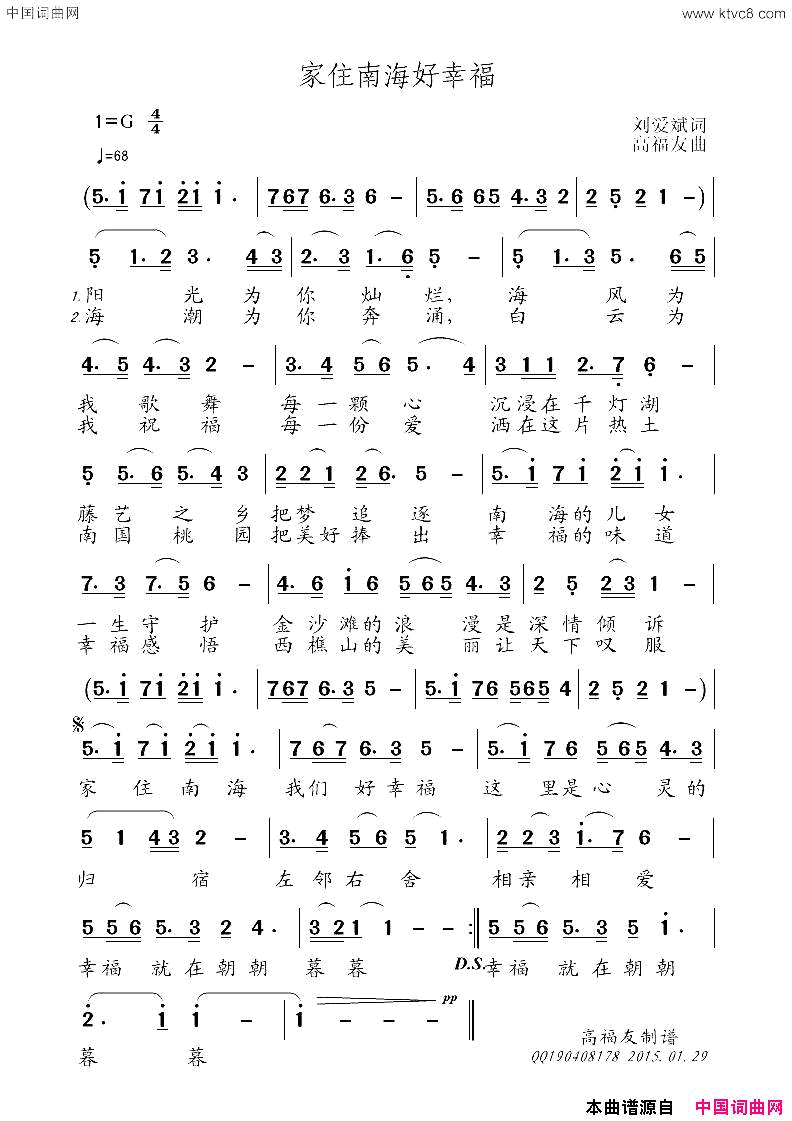 中国词曲网
www.ktvc8.com
家住南海好幸福
1=G 4/4
♩=68
刘爱斌词
高福友曲
(5. 1 7 1 2 1 1. | 7 6 7 6. 3 6 - | 5. 6 6 5 4. 3 2 | 2 5 2 1 -) |
5 1. 2 3. 4 3 | 2. 3 1. 6 5 - | 5 1. 3 5. 6 5 |
1.阳 光 为 你 灿 烂, 海 风 为
2.海 潮 为 你 奔 涌, 白 云 为
4. 5 4. 3 2 - | 3. 4 5 6 5. 4 | 3 1 1 2. 7 6 - |
我 歌 舞 每 一 颗 心 沉 浸 在 千 灯 湖
我 祝 福 每 一 份 爱 洒 在 这 片 热 土
5 5. 6 5. 4 3 | 2 2 1 2 6. 5 - | 5. 1 7 1 2 1 1. |
藤 艺 之 乡 把 梦 追 逐 南 海 的 儿 女
南 国 桃 园 把 美 好 捧 出 幸 福 的 味 道
7. 3 7. 5 6 - | 4. 6 1 6 5 6 5 4. 3 | 2 5 2 3 1 - |
一 生 守 护 金 沙 滩 的 浪 漫 是 深 情 倾 诉
幸 福 感 悟 西 樵 山 的 美 丽 让 天 下 叹 服
(5. 1 7 1 2 1 1. | 7 6 7 6. 3 5 - | 5. 1 7 6 5 6 5 4 | 2 5 2 1 -) |
5. 1 7 1 2 1 1. | 7 6 7 6. 3 5 - | 5. 1 7 6 5 6 5 4. 3 |
家 住 南 海 我 们 好 幸 福 这 里 是 心 灵 的
5 1 4 3 2 - | 3. 4 5 6 5 1. | 2 2 3 1. 7 6 - |
归 宿 左 邻 右 舍 相 亲 相 爱
5 5 6 5. 3 2 4. | 3 2 1 1 - - :‖ 5 5 6 5. 3 5 1. |
幸 福 就 在 朝 朝 暮 暮 D.S. 幸 福 就 在 朝 朝
2. 1 | 1 - - 1 | 1 - - - ‖ pp
暮 暮
高福友制谱
QQ190408178 2015.01.29
本曲谱源自 中国词曲网